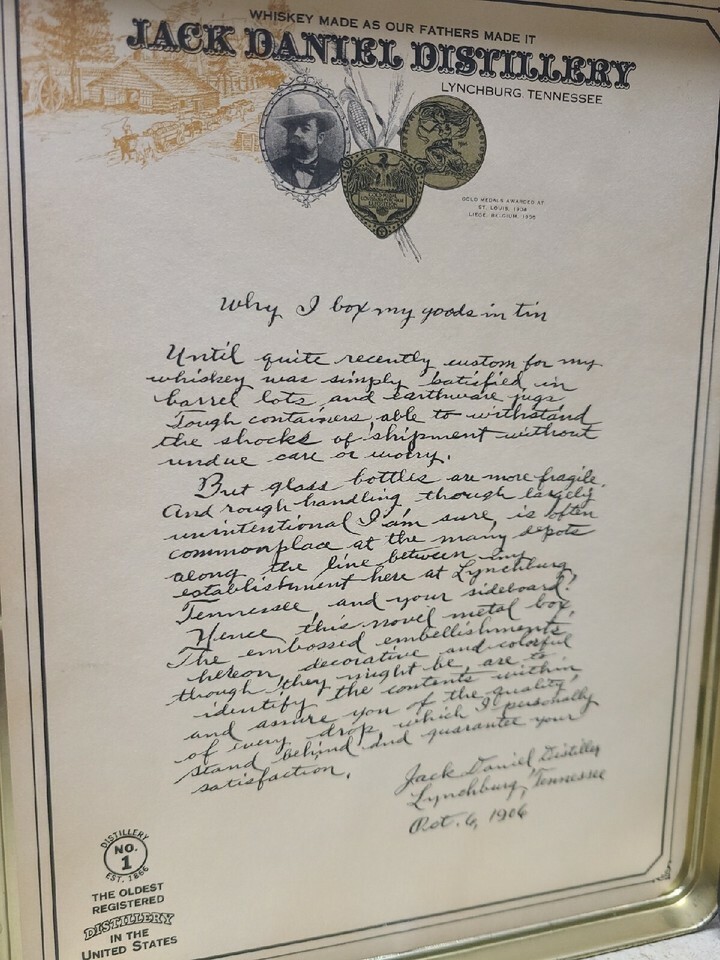 WHISKEY MADE AS OUR FATHERS MADE IT
JACK DANIEL DISTILLERY
LYNCHBURG, TENNESSEE
GOLD MEDALS AWARDED AT
ST. LOUIS, 1904
LIEGE, BELGIUM, 1905
Why I box my goods in tin
Until quite recently custom for my
whiskey was simply satisfied in
barrel lots and earthware jugs
Tough containers, able to withstand
the shocks of shipment without
undue care or worry.
But glass bottles are more fragile.
And rough handling though largely
unintentional I am sure, is often
commonplace at the many depots
along the line between my
establishment here at Lynchburg
Tennessee, and your sideboard!
Hence this novel metal box.
The embossed embellishments
hereon, decorative and colorful
though they might be, are to
identify the contents within
and assure you of the quality
of every drop which I personally
stand behind and guarantee your
satisfaction.
Jack Daniel Distiller
Lynchburg, Tennessee
Oct. 6, 1906
DISTILLERY
NO.
1
EST. 1866
THE OLDEST
REGISTERED
DISTILLERY
IN THE
UNITED STATES